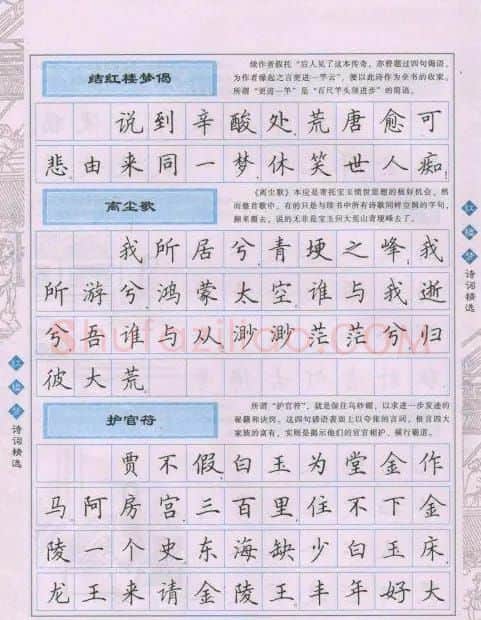 结红楼梦偈
续作者假托“后人见了这本传奇，亦曾题过四句偈语，
为作者缘起之言更进一竿云”，便以此诗作为全书的收家。
所谓“更进一竿”是“百尺竿头须进步”的简语。
说到辛酸处荒唐愈可
悲由来同一梦休笑世人痴
离尘歌
《离尘歌》本应是寄托宝玉愤世思想的极好机会，然
而整首歌中，有的只是与续书中所有诗歌同样空洞的字句，
翻来覆去，说的无非是宝玉回大荒山青埂峰去了。
我所居兮青埂之峰我
所游兮鸿蒙太空谁与我逝
兮吾谁与从渺渺茫茫兮归
彼大荒
护官符
所谓“护官符”，就是保住乌纱帽，以求进一步发迹的
秘籍和诀窍。这四句俗语表面上以夸张的言词，极言四大
家族的富有，实则是揭示他们的官官相护、横行霸道。
贾不假白玉为堂金作
马阿房宫三百里住不下金
陵一个史东海缺少白玉床
龙王来请金陵王丰年好大
红楼梦
诗词精选
红楼梦
诗词精选
Shufaziliao.COM